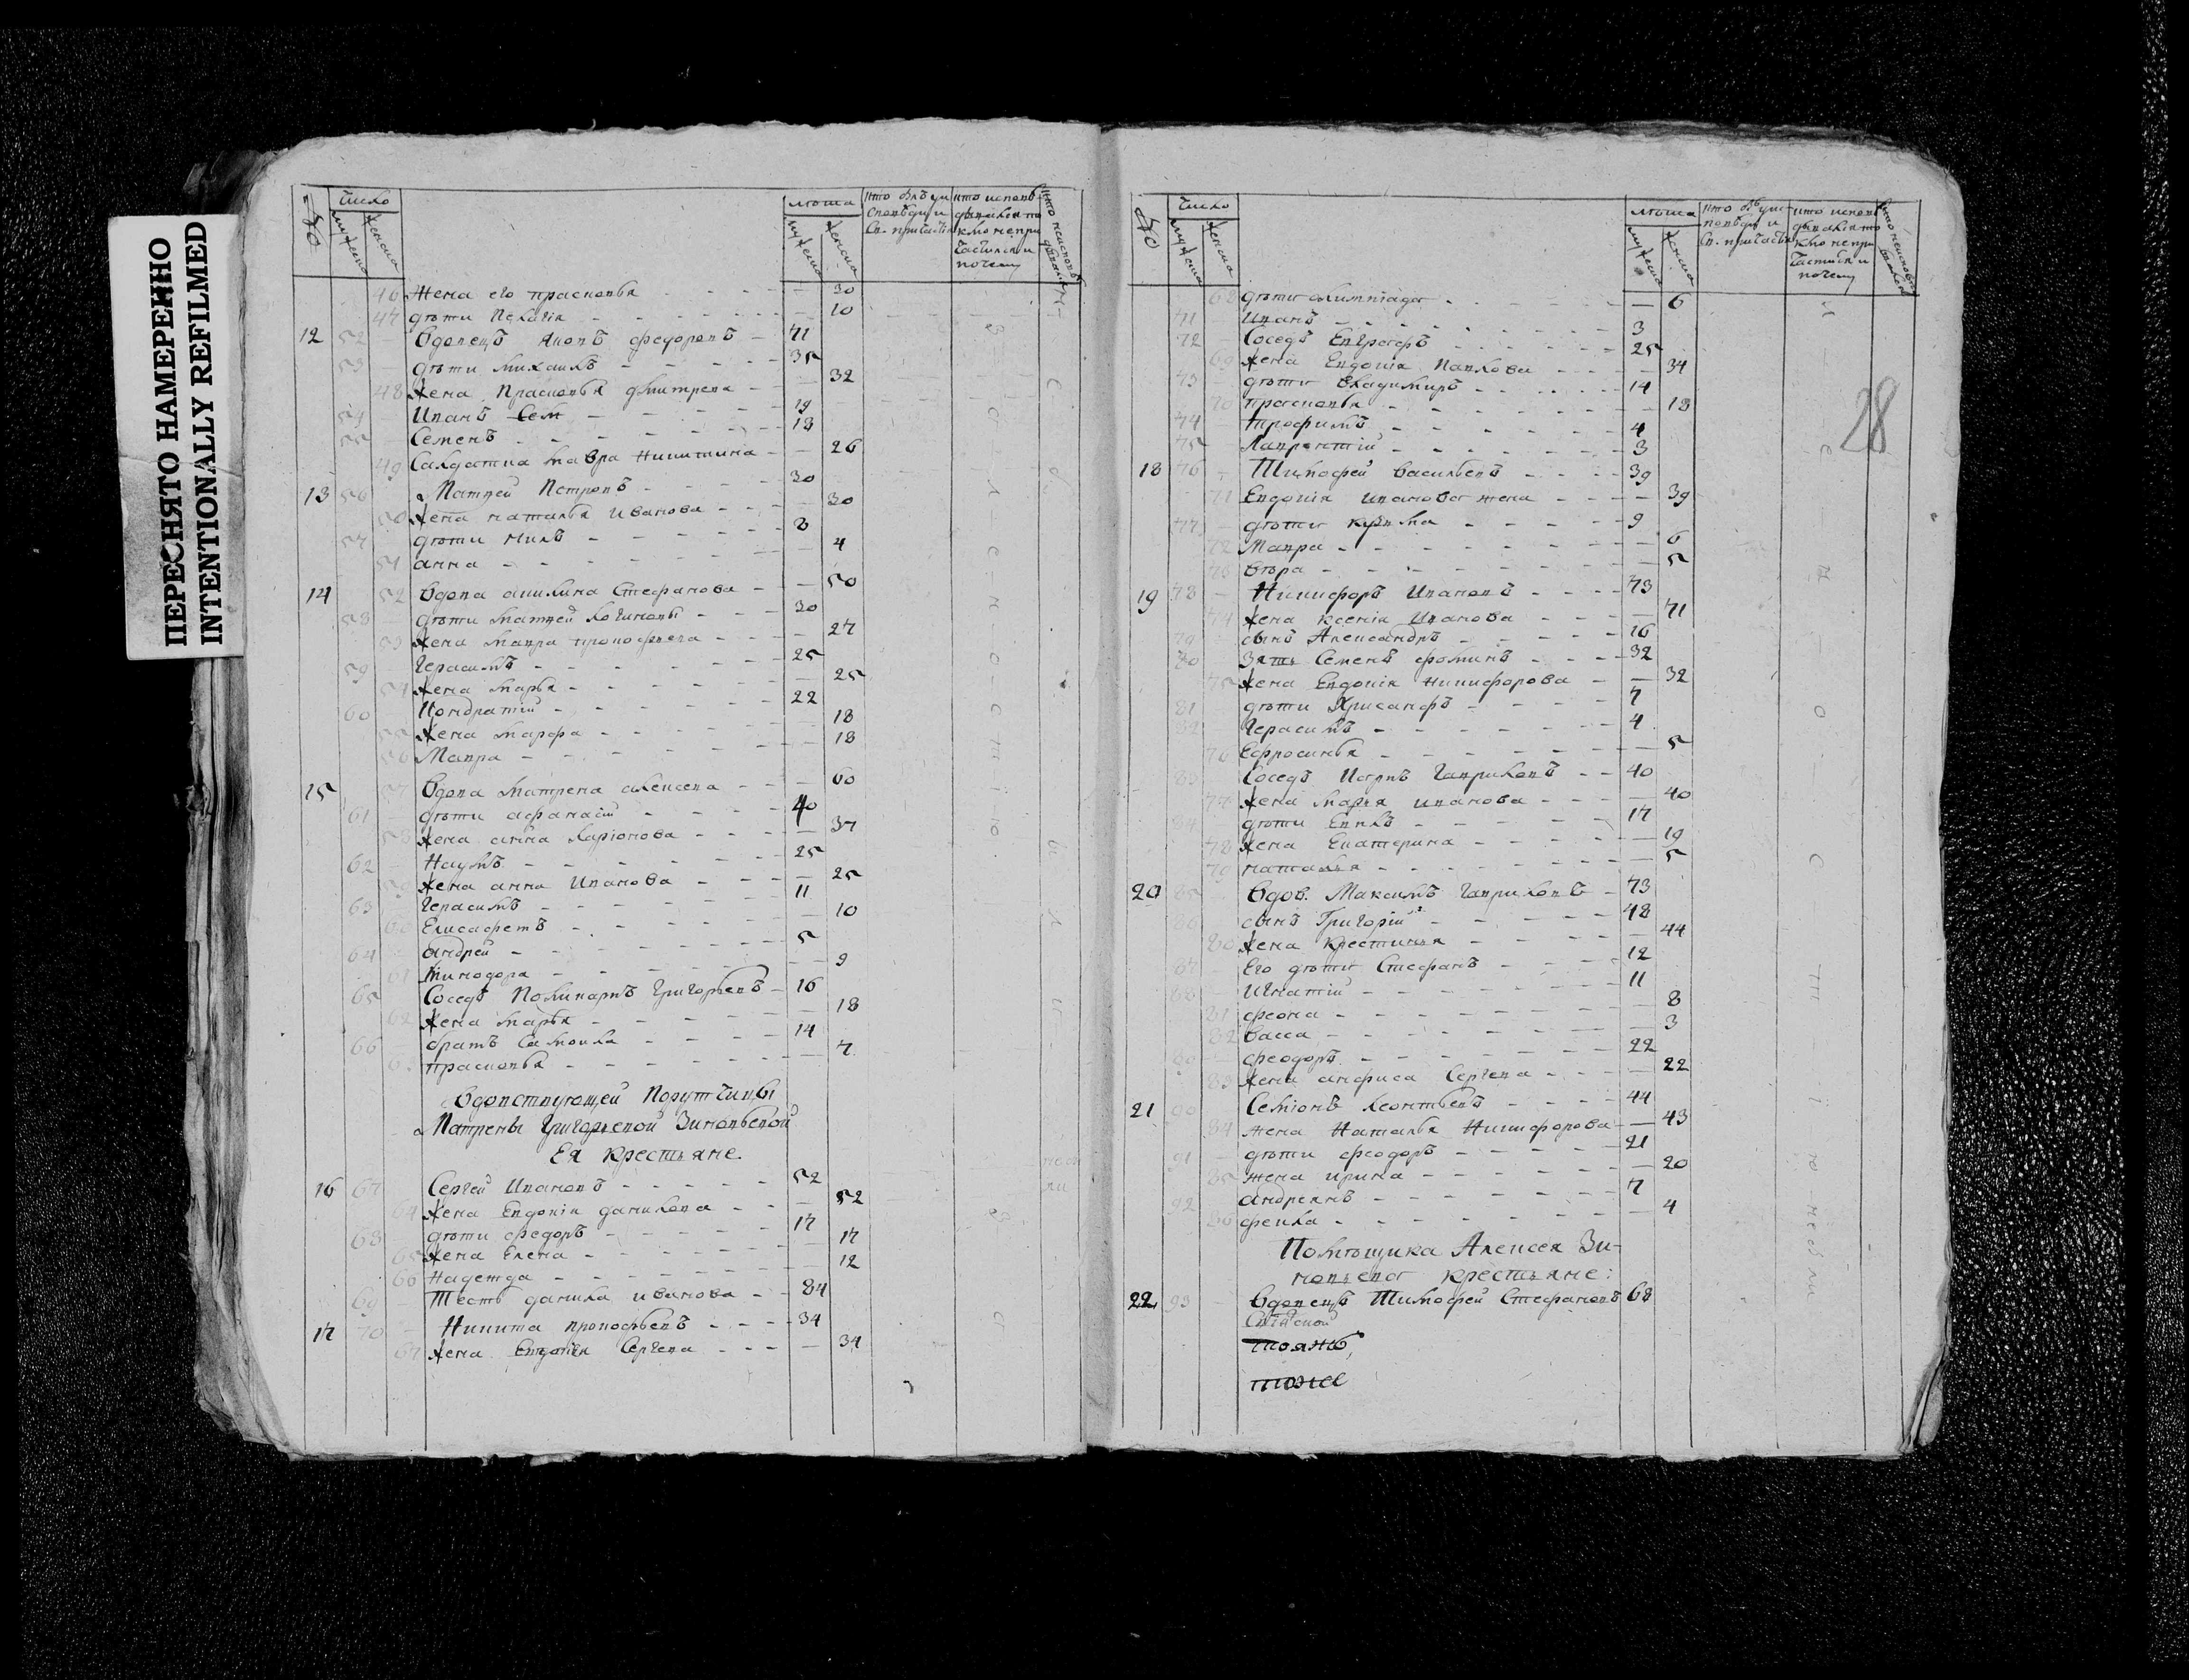 ПЕРЕСНЯТО НАМЕРЕННО
INTENTIONALLY REFILMED
№ Число мужеска женска лѣта мужеска женска
46 Жена его прасковья 30
47 дѣти Пелагія 10
12 52 Вдовецъ Яковъ федоровъ 71
53 дѣти михаилъ 35
48 жена Прасковья дмитрева 32
54 Иванъ 19
55 Семенъ 18
49 Салдатка мавра никитина 26
13 56 Матвей Петровъ 30
50 жена наталья иванова 30
57 дѣти нилъ 8
51 анна 4
14 52 Вдова акилина Стефанова 50
58 дѣти матвей логиновъ 30
53 жена мавра прокофьева 27
59 Герасимъ 25
54 жена марья 25
60 Кондратій 22
55 жена марфа 18
56 Мавра 18
15 57 Вдова матрена алексева 60
61 дѣти афанасій 40
58 жена анна ларіонова 37
62 Наумъ 25
59 жена анна Иванова 25
63 Герасимъ 11
60 Елисафетъ 10
64 андрей 5
61 минодора 9
65 Соседъ Поликарпъ Григорьевъ 16
62 жена марья 18
66 братъ Самоила 14
63 прасковья 7
Вдовствующей Порутчицы
Матрены Григорьевой Зиновьевой
Ея крестьяне.
16 67 Сергей Ивановъ 52
64 жена Евдокія данилова 52
68 дѣти федоръ 17
65 жена Елена 17
66 надежда 12
69 Тесть данила иванова 84
17 70 Никита прокофьевъ 34
67 жена Евдокія Сергева 34
28
№ Число мужеска женска лѣта мужеска женска
68 дѣти олимпіада 6
71 Иванъ 3
72 Соседъ Евграфъ 25
69 жена Евдокія Павлова 34
73 дѣти владимиръ 14
70 прасковья 18
74 трофимъ 4
75 Лаврентій 3
18 76 Тимофей васильевъ 39
71 Евдокія иванова жена 39
77 дѣти кузьма 9
72 Мавра 6
73 вѣра 5
19 78 Никифоръ Ивановъ 73
74 жена ксенія иванова 71
79 сынъ Александръ 16
80 Зять Семенъ фоминъ 32
75 жена Евдокія никифорова 32
81 дѣти Хрисанфъ 7
82 Герасимъ 4
76 Ефросинья 5
83 Соседъ Гавриловъ 40
77 жена марья иванова 40
84 дѣти 17
78 жена Екатерина 19
79 наталья 5
20 85 Вдов. Максимъ Гавриловъ 73
86 сынъ Григорій 48
80 жена крестинья 44
87 Его дѣти Стефанъ 12
88 Игнатій 11
81 феона 8
82 васса 3
89 феодоръ 22
83 жена анфиса Сергева 22
21 90 Семіонъ леонтьевъ 44
84 жена Наталья Никифорова 43
91 дѣти феодоръ 21
85 жена ирина 20
92 андреянъ 7
86 фекла 4
Помѣщика Алексея Зи-
новьева крестьяне:
22 93 Вдовецъ Тимофей Стефановъ 68
тоже